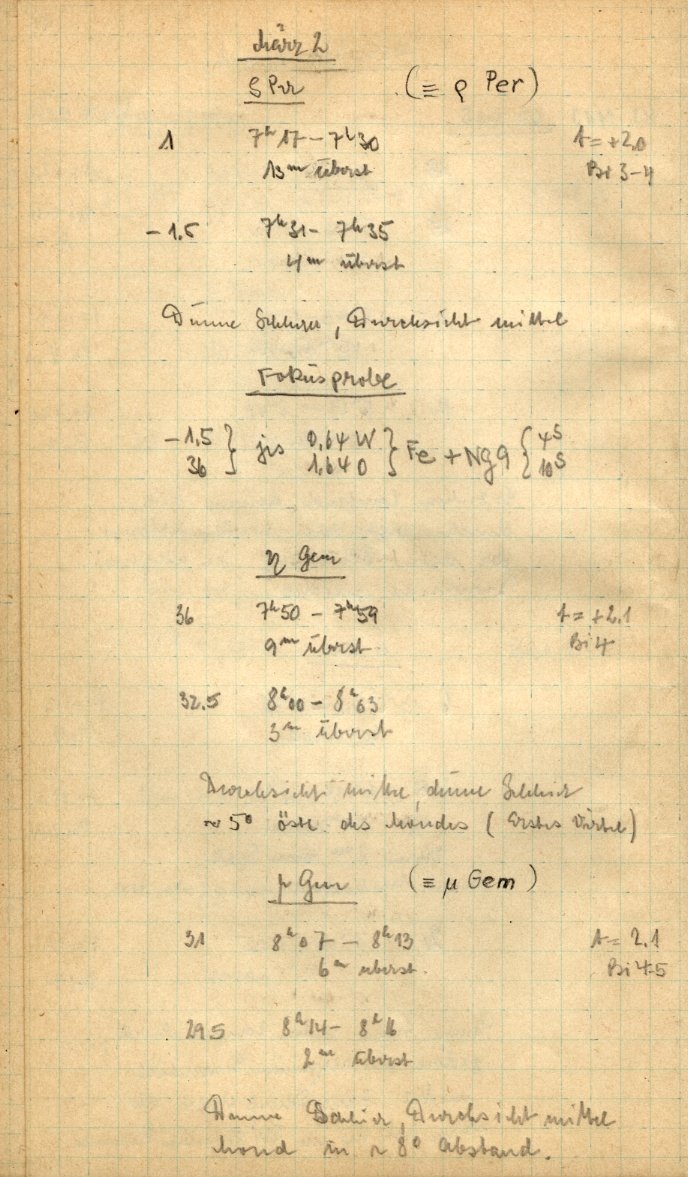 März 2
ρ Per (≡ ρ Per)
1 7ʰ17 – 7ʰ30 t = +2.0
13ᵐ überst Bi 3-4
-1.5 7ʰ31 – 7ʰ35
4ᵐ überst
Dünne Schlier, Durchsicht mittel
Fokusprobe
-1.5 } 0.64 W } Fe + Ng 9 { 4ˢ
36 1.64 O 10ˢ
η Gem
36 7ʰ50 – 7ʰ59 t = +2.1
9ᵐ überst Bi 4
32.5 8ʰ00 – 8ʰ03
3ᵐ überst
Durchsicht mittel, dünne Schlier
~ 5° östl. des Mondes (Erstes Viertel)
μ Gem (≡ μ Gem)
31 8ʰ07 – 8ʰ13 t = 2.1
6ᵐ überst. Bi 4-5
29.5 8ʰ14 – 8ʰ16
2ᵐ überst
Dünne Schlier, Durchsicht mittel
Mond in ~ 8° Abstand.